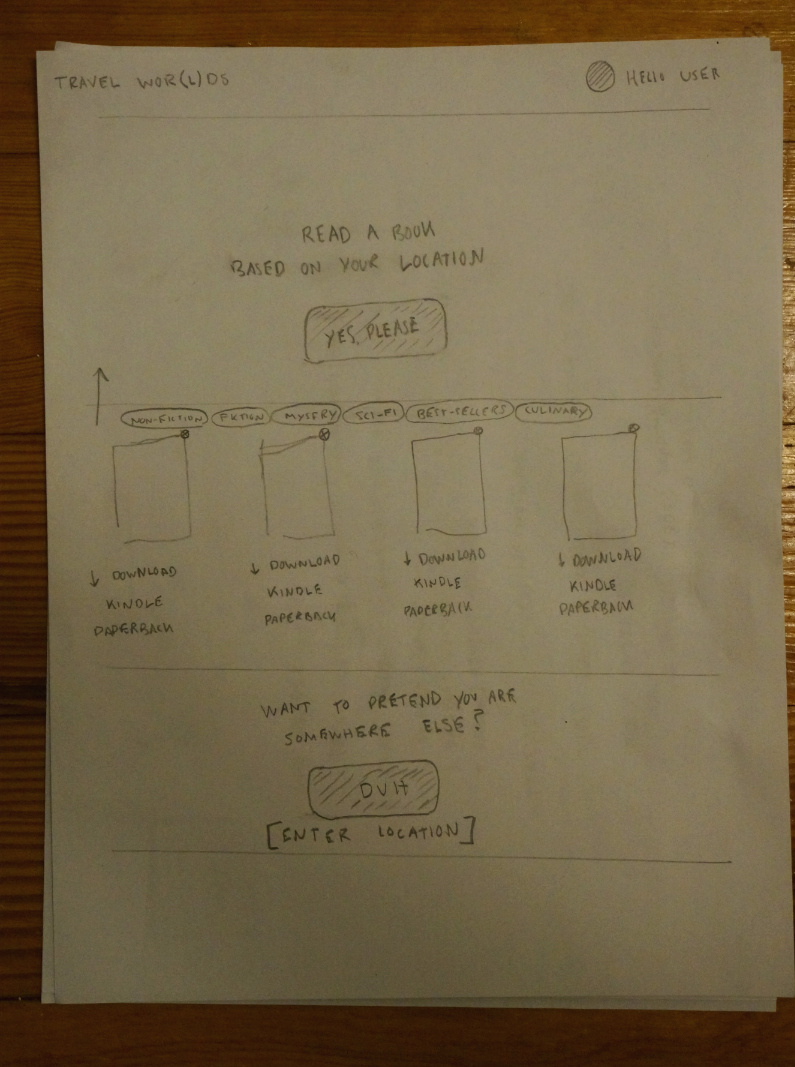 TRAVEL WOR(L)DS
HELLO USER
READ A BOOK
BASED ON YOUR LOCATION
YES, PLEASE
NON-FICTION FICTION MYSERY SCI-FI BEST-SELLERS CULINARY
↓ DOWNLOAD
KINDLE
PAPERBACK
↓ DOWNLOAD
KINDLE
PAPERBACK
↓ DOWNLOAD
KINDLE
PAPERBACK
↓ DOWNLOAD
KINDLE
PAPERBACK
WANT TO PRETEND YOU ARE
SOMEWHERE ELSE?
DUH
[ENTER LOCATION]